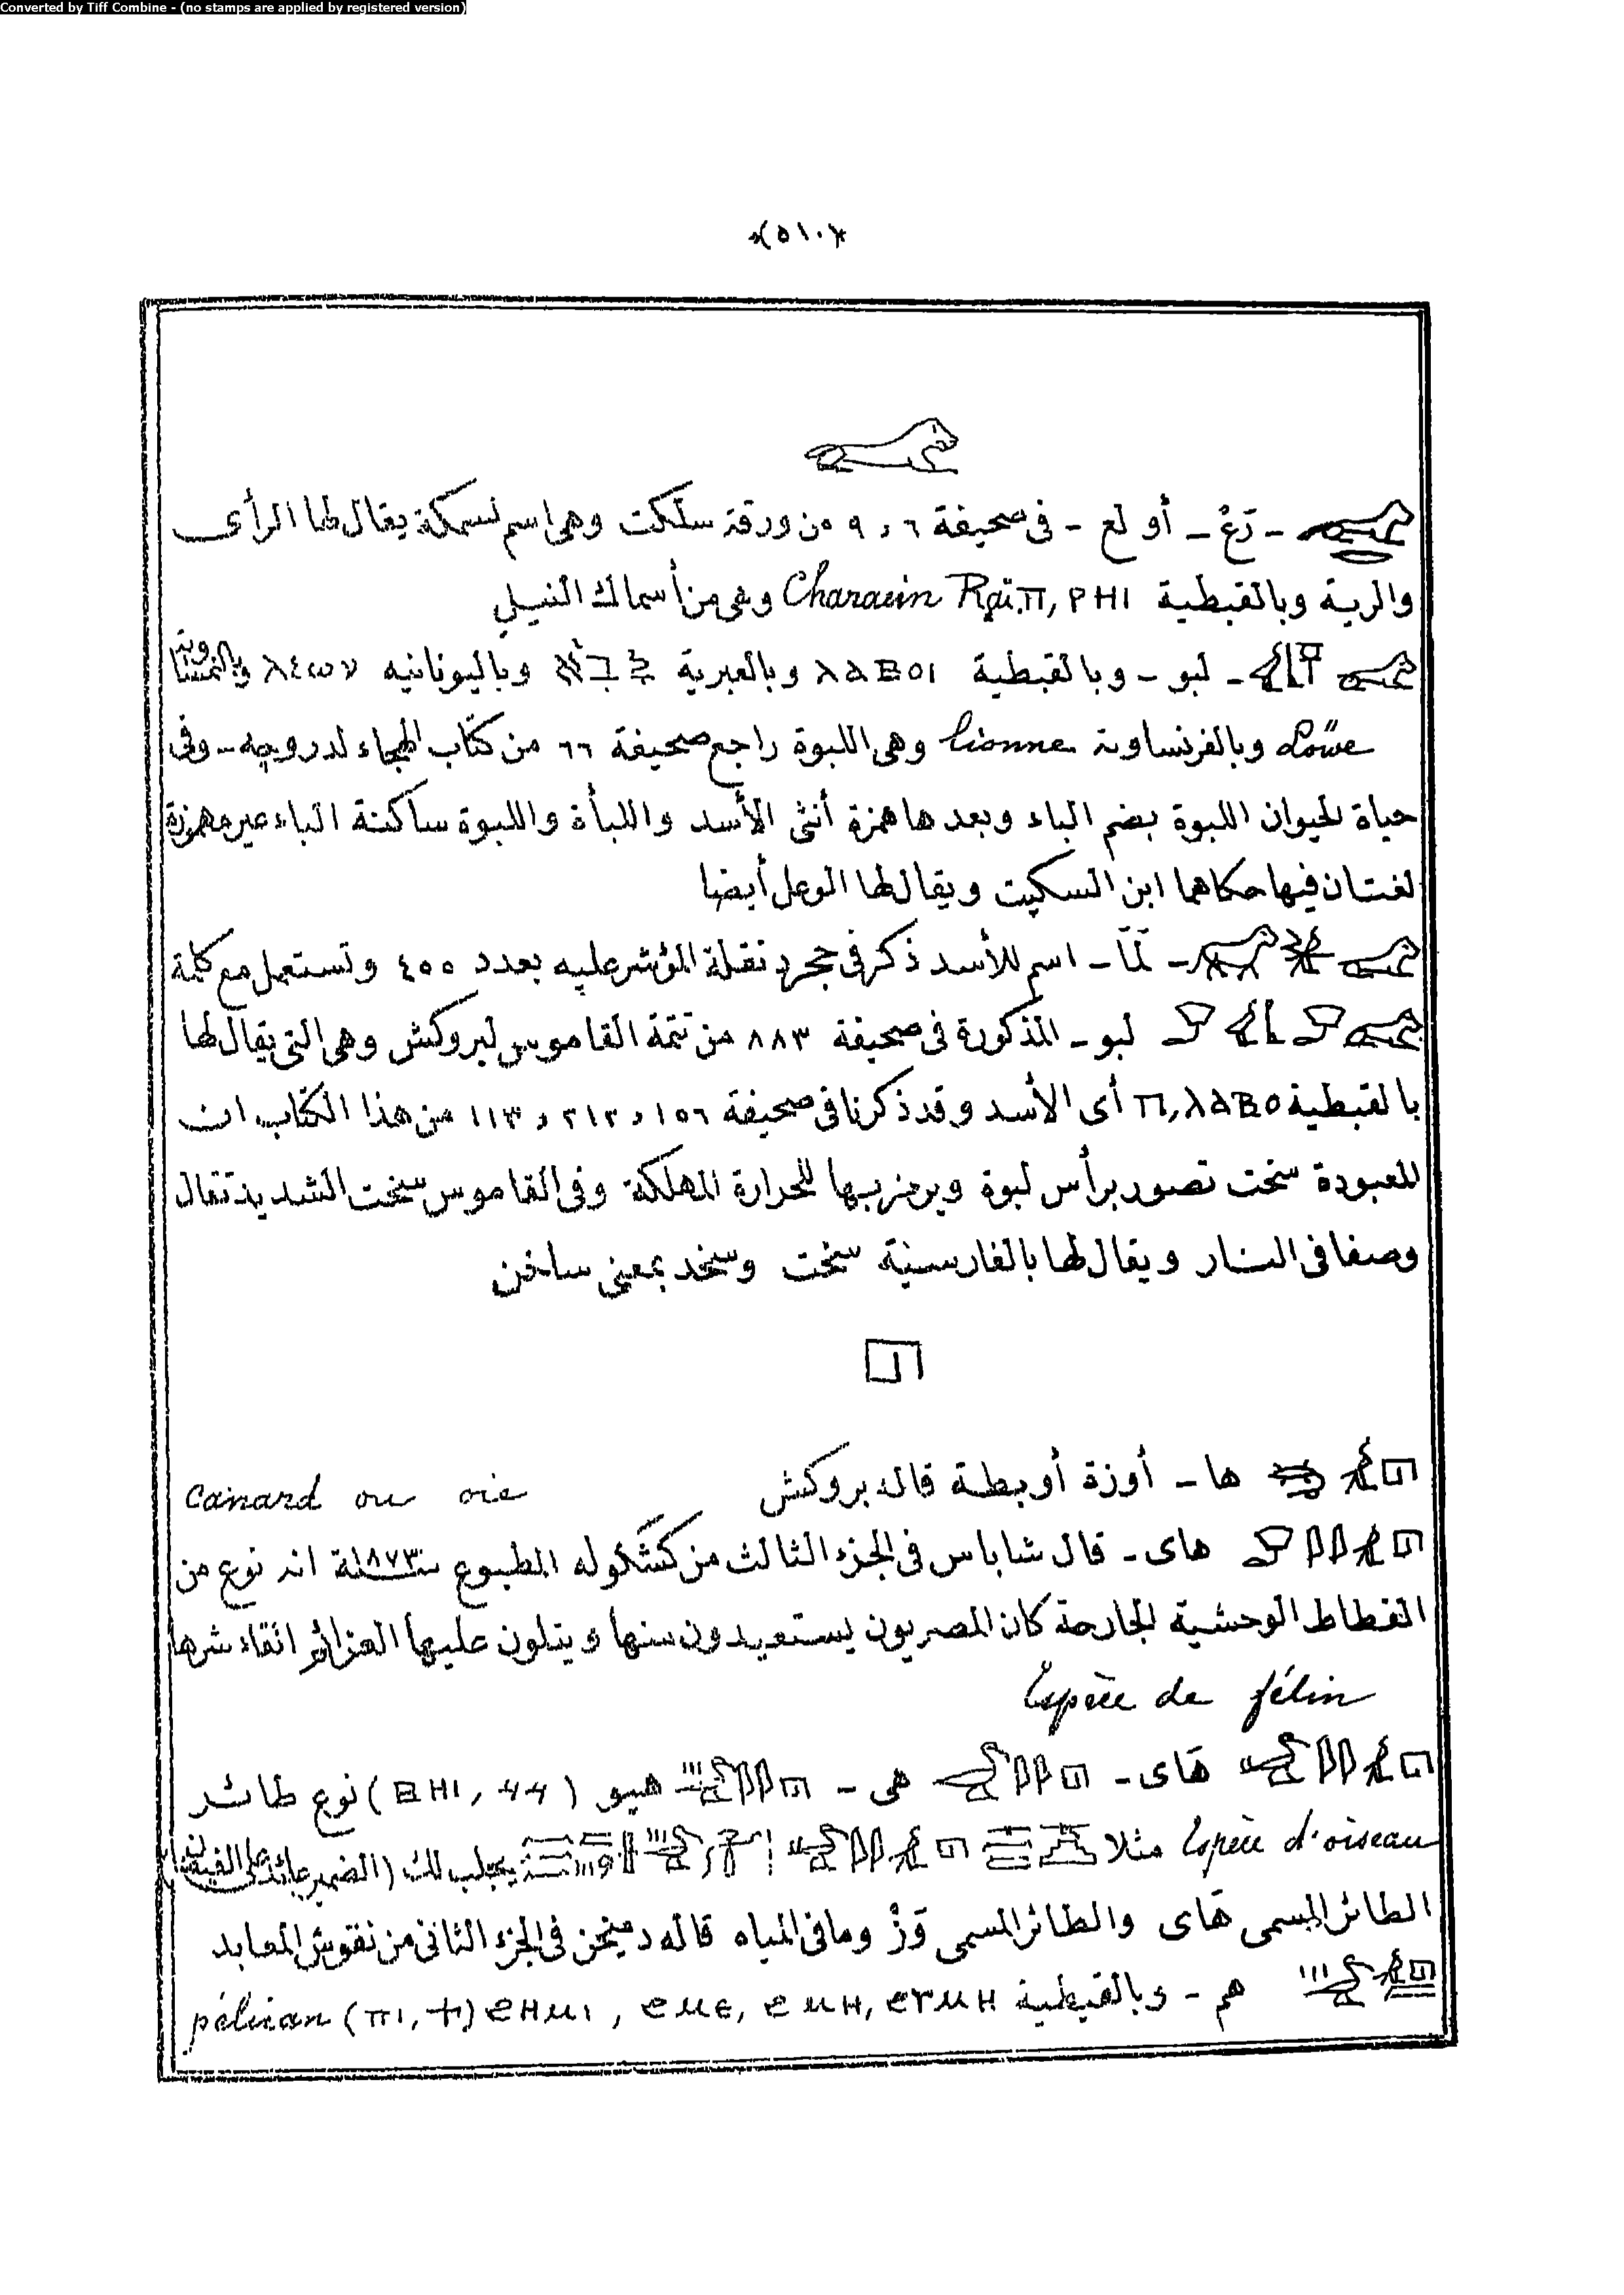 Converted by Tiff Combine - (no stamps are applied by registered version)
*(٥١٠)*
- رَعْ - أو لع - فى صحيفة ٦ و ٩ من ورقة سلكت وهى اسم لسمكة يقال لها الرأى
والرية وبالقبطية Π, ΡΗΙ Characin Raï. وهى من أسماك النيل
- لبو - وبالقبطية ⲗⲁⲃⲟⲓ وبالعبرية وباليونانيه وبالنمساوية
Löwe وبالفرنساوية lionne وهى اللبوة راجع صحيفة ٦٦ من كتاب الهجاء لدروجيه - وفى
حياة الحيوان اللبوة بضم الباء وبعدها همزة أنثى الأسد واللبأة واللبوة ساكنة الباء غير مهموزة
لغتان فيها حكاهما ابن السكيت ويقال لها الوعل أيضا
- لَمَا - اسم للأسد ذكر فى حجر المؤشر عليه بعدد ٤٥٥ وتستعمل مع كلمة
لبو - المذكورة فى صحيفة ٨٨٣ من تتمة القاموس لبروكش وهى التى يقال لها
بالقبطية Π, ⲗⲁⲃⲟ أى الأسد وقد ذكرنا فى صحيفة ١٥٦ و ٢١٢ و ١١٣ من هذا الكتاب ان
المعبودة سخت تصور برأس لبوة ويرمز بها للحرارة المهلكة وفى القاموس سخت الشديد تقال
وصفا فى النار ويقال لها بالفارسية سخت وسخد بمعنى ساخن
ها - أوزة أو بطة قاله بروكش canard ou oie
هاى - قال شاباس فى الجزء الثالث من كشكوله المطبوع سنة ١٨٧٣ انه نوع من
القطاط الوحشية الجارحة كان المصريون يستعيدون منها ويتلون عليها العزائم اتقاء شرها
Espèce de félin
هَاى - هى - هيو نوع طائر
Espèce d'oiseau مثلا يجلب لك (الضمير عائد على
الطائر المسمى هَاى والطائر المسمى وَزْ وما فى المياه قاله دميخن فى الجزء الثانى من نقوش المعابد
هم - وبالقبطية ϩⲩⲙⲏ, ϩⲙⲏ, ϩⲙⲉ, ϩⲏⲙⲓ (ⲡⲓ, ϯ) pélican